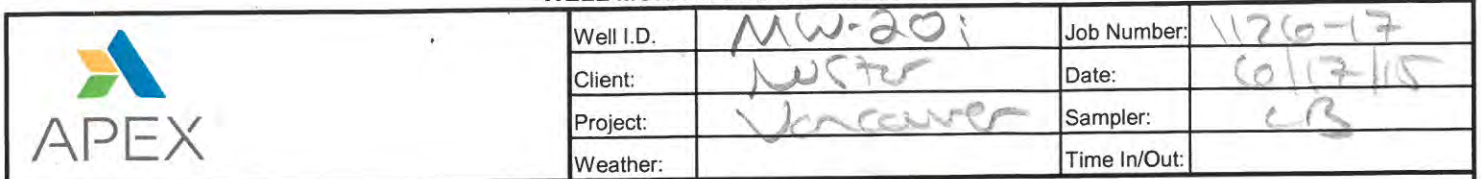 APEX
Well I.D. MW-20i Job Number: 1126-17
Client: NuStar Date: 6/17/15
Project: Vancouver Sampler: CB
Weather: Time In/Out: